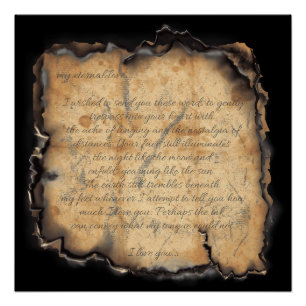 my eternal love...
I wished to send you these words to gently
trespass into your heart with
the ache of longing and the nostalgia of
distances. Your face still illuminates
the night like the moon and
enfolds yearning like the sun.
The earth still trembles beneath
my feet whenever I attempt to tell you how
much I love you. Perhaps the ink
can convey what my tongue could not.
I love you...